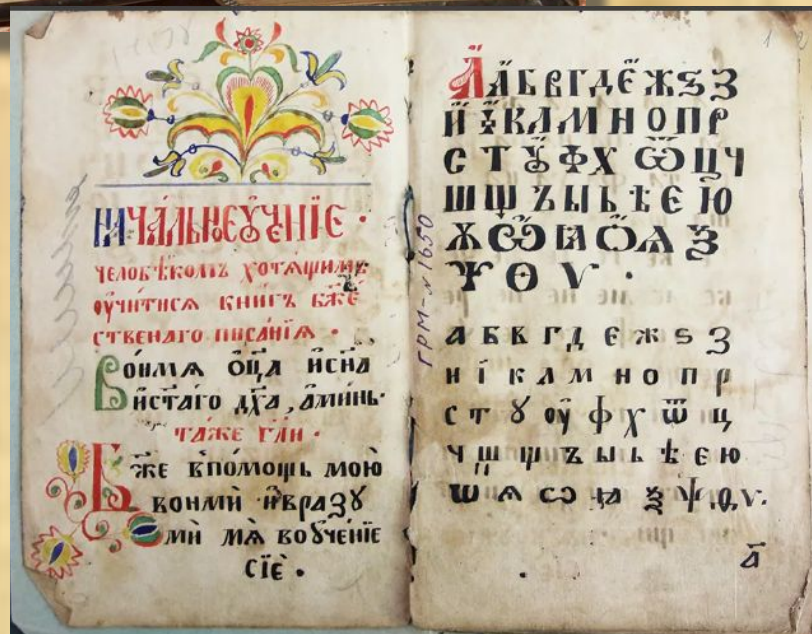 НАЧА́ЛЬНОЕ ᲂУЧЕ́НЇЕ ·
человѣкомъ хотѧщимъ
ᲂучи́тисѧ книгъ бж҃е
ственаго писанїѧ ·
Во́имѧ ѻц҃а и҆сн҃а
и҆ст҃а́го дх҃а, а҆ми́нь·
та́же гл҃и ·
Бж҃е в̾по́мощь мою̀
вонмѝ и҆вразꙋ
мѝ мѧ̀ во ᲂуче́нїе
сїѐ ·
1
А А Б В Г Д Є Ж Ѕ З
И Ї К Л М Н О П Р
С Т Ꙋ Ф Х Ѿ Ц Ч
Ш Щ Ъ Ы Ь Ѣ Є Ю
Ѫ Ѽ Ꙗ Ѽ Ѧ Ѯ
Ѱ Ѳ Ѵ ·
ГРМ-№1650
а б в г д є ж ѕ з
и ї к л м н о п р
с т ꙋ ᲂу ф х ѿ ц
ч ш щ ъ ы ь ѣ є ю
ѡ ѧ ѽ ꙗ ѯ ѱ ѳ ѵ.
а҃